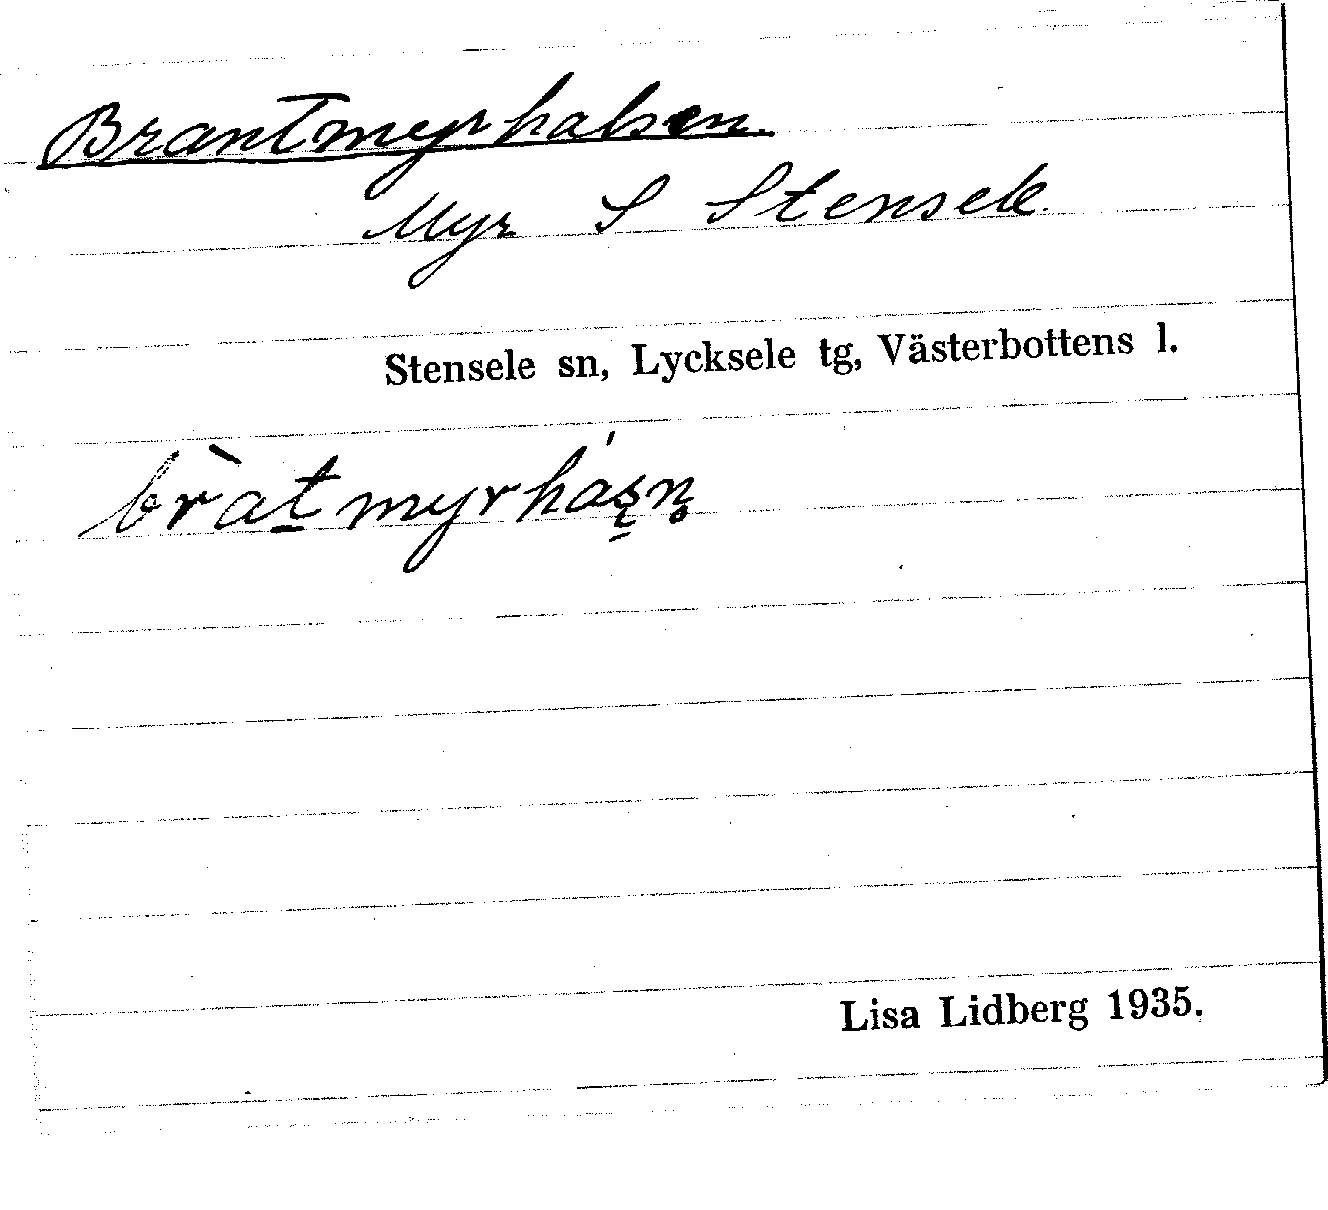 Brantmyrhalsen.
Myr S Stensele.
Stensele sn, Lycksele tg, Västerbottens l.
bràt̠myrhás̨n̥
Lisa Lidberg 1935.